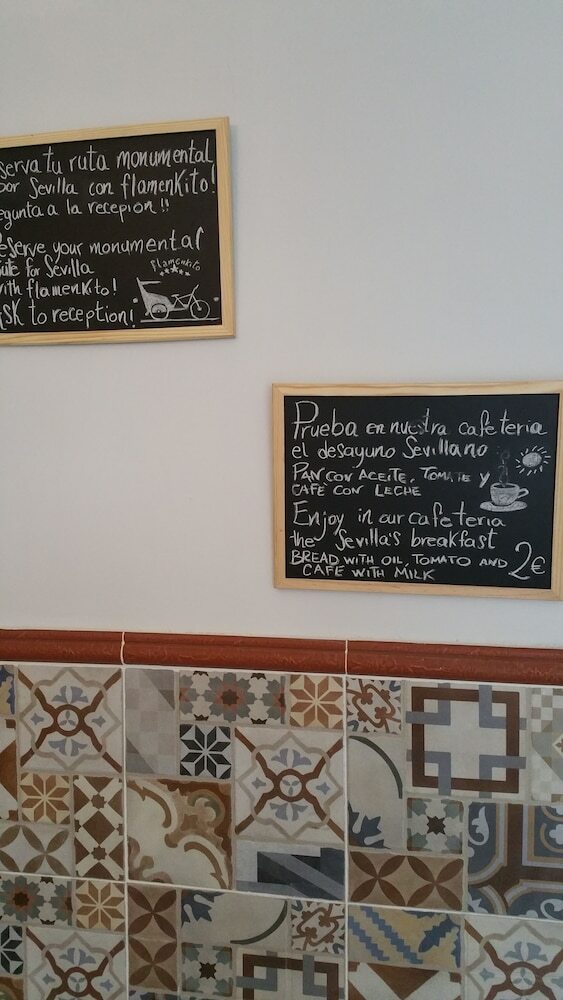 serva tu ruta monumental
por Sevilla con flamenkito!
egunta a la recepion!!
eserve your monumental
ute for Sevilla
ith flamenkito!
ask to reception!
flamenkito
Prueba en nuestra cafeteria
el desayuno Sevillano
PAN CON ACEITE, TOMATE Y
CAFE CON LECHE
Enjoy in our cafeteria
the Sevilla's breakfast
BREAD WITH OIL, TOMATO AND
CAFE WITH MILK
2€